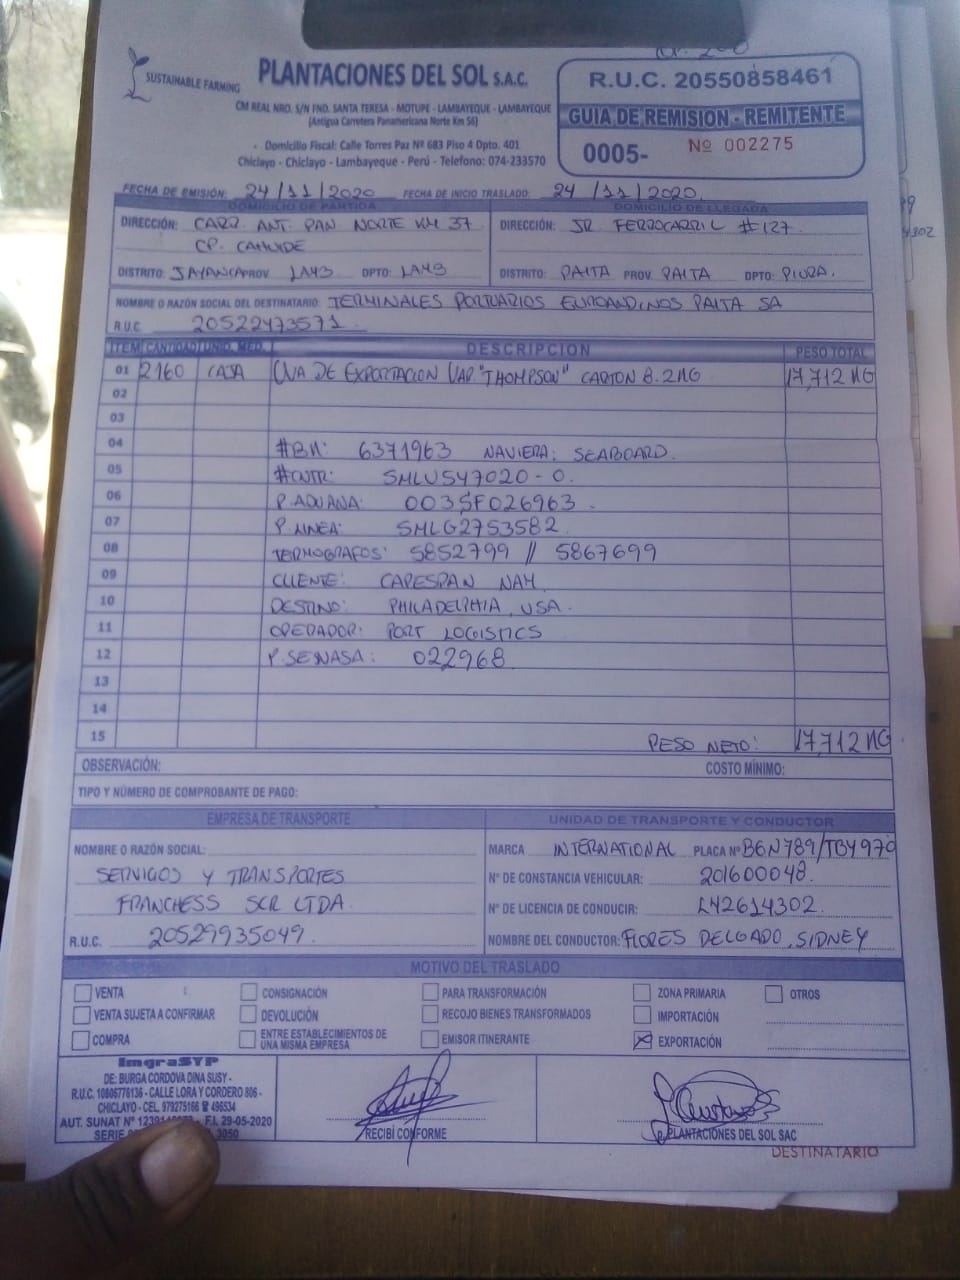 SUSTAINABLE FARMING
PLANTACIONES DEL SOL S.A.C.
CM REAL NRO. S/N FND. SANTA TERESA - MOTUPE - LAMBAYEQUE - LAMBAYEQUE
(Antigua Carretera Panamericana Norte Km 56)
Domicilio Fiscal: Calle Torres Paz Nº 683 Piso 4 Dpto. 401
Chiclayo - Chiclayo - Lambayeque - Perú - Telefono: 074-233570
R.U.C. 20550858461
GUIA DE REMISION - REMITENTE
0005- Nº 002275
FECHA DE EMISIÓN: 24/11/2020 FECHA DE INICIO TRASLADO: 24/11/2020
DOMICILIO DE PARTIDA
DIRECCIÓN: CARR. ANT. PAN NORTE KM 37
DISTRITO: JAYANCA PROV. LAMB DPTO: LAMB
DOMICILIO DE LLEGADA
DIRECCIÓN: JR FERROCARRIL #127
DISTRITO: PAITA PROV. PAITA DPTO: PIURA.
NOMBRE O RAZÓN SOCIAL DEL DESTINATARIO: TERMINALES PORTUARIOS EUROANDINOS PAITA SA
R.U.C. 20522473571
ITEM CANTIDAD UNID. MED. DESCRIPCION PESO TOTAL
01 2160 CAJA UVA DE EXPORTACION VAR "THOMPSON" CARTON 8.2KG 17,712 KG
02
03
04 #BK: 6371963 NAVIERA: SEABOARD.
05 #CNTR: SMLU547020-0.
06 P. ADUANA: 003SF026963.
07 P. LINEA: SMLG2753582.
08 TERMOGRAFOS: 5852799 // 5867699
09 CLIENTE: CAPESPAN NAM.
10 DESTINO: PHILADELPHIA, USA.
11 OPERADOR: PORT LOGISTICS
12 P. SENASA: 022968
13
14
15 PESO NETO: 17,712 KG
OBSERVACIÓN: COSTO MÍNIMO:
TIPO Y NÚMERO DE COMPROBANTE DE PAGO:
EMPRESA DE TRANSPORTE
NOMBRE O RAZÓN SOCIAL:
SERVICIOS Y TRANSPORTES
FRANCHESS SCR LTDA
R.U.C. 20529935049.
UNIDAD DE TRANSPORTE Y CONDUCTOR
MARCA INTERNATIONAL PLACA Nº B6N789/TBY970
Nº DE CONSTANCIA VEHICULAR: 201600048.
Nº DE LICENCIA DE CONDUCIR: L42614302.
NOMBRE DEL CONDUCTOR: FLORES DELGADO, SIDNEY
MOTIVO DEL TRASLADO
VENTA CONSIGNACIÓN PARA TRANSFORMACIÓN ZONA PRIMARIA OTROS
VENTA SUJETA A CONFIRMAR DEVOLUCIÓN RECOJO BIENES TRANSFORMADOS IMPORTACIÓN
COMPRA ENTRE ESTABLECIMIENTOS DE UNA MISMA EMPRESA EMISOR ITINERANTE EXPORTACIÓN
ImgraSYP
DE: BURGA CORDOVA DINA SUSY -
R.U.C. 10806776136 - CALLE LORA Y CORDERO 806 -
CHICLAYO - CEL. 979275166 ☎ 496534
AUT. SUNAT Nº F.I. 29-05-2020
SERIE 3050
RECIBÍ CONFORME
PLANTACIONES DEL SOL SAC
DESTINATARIO